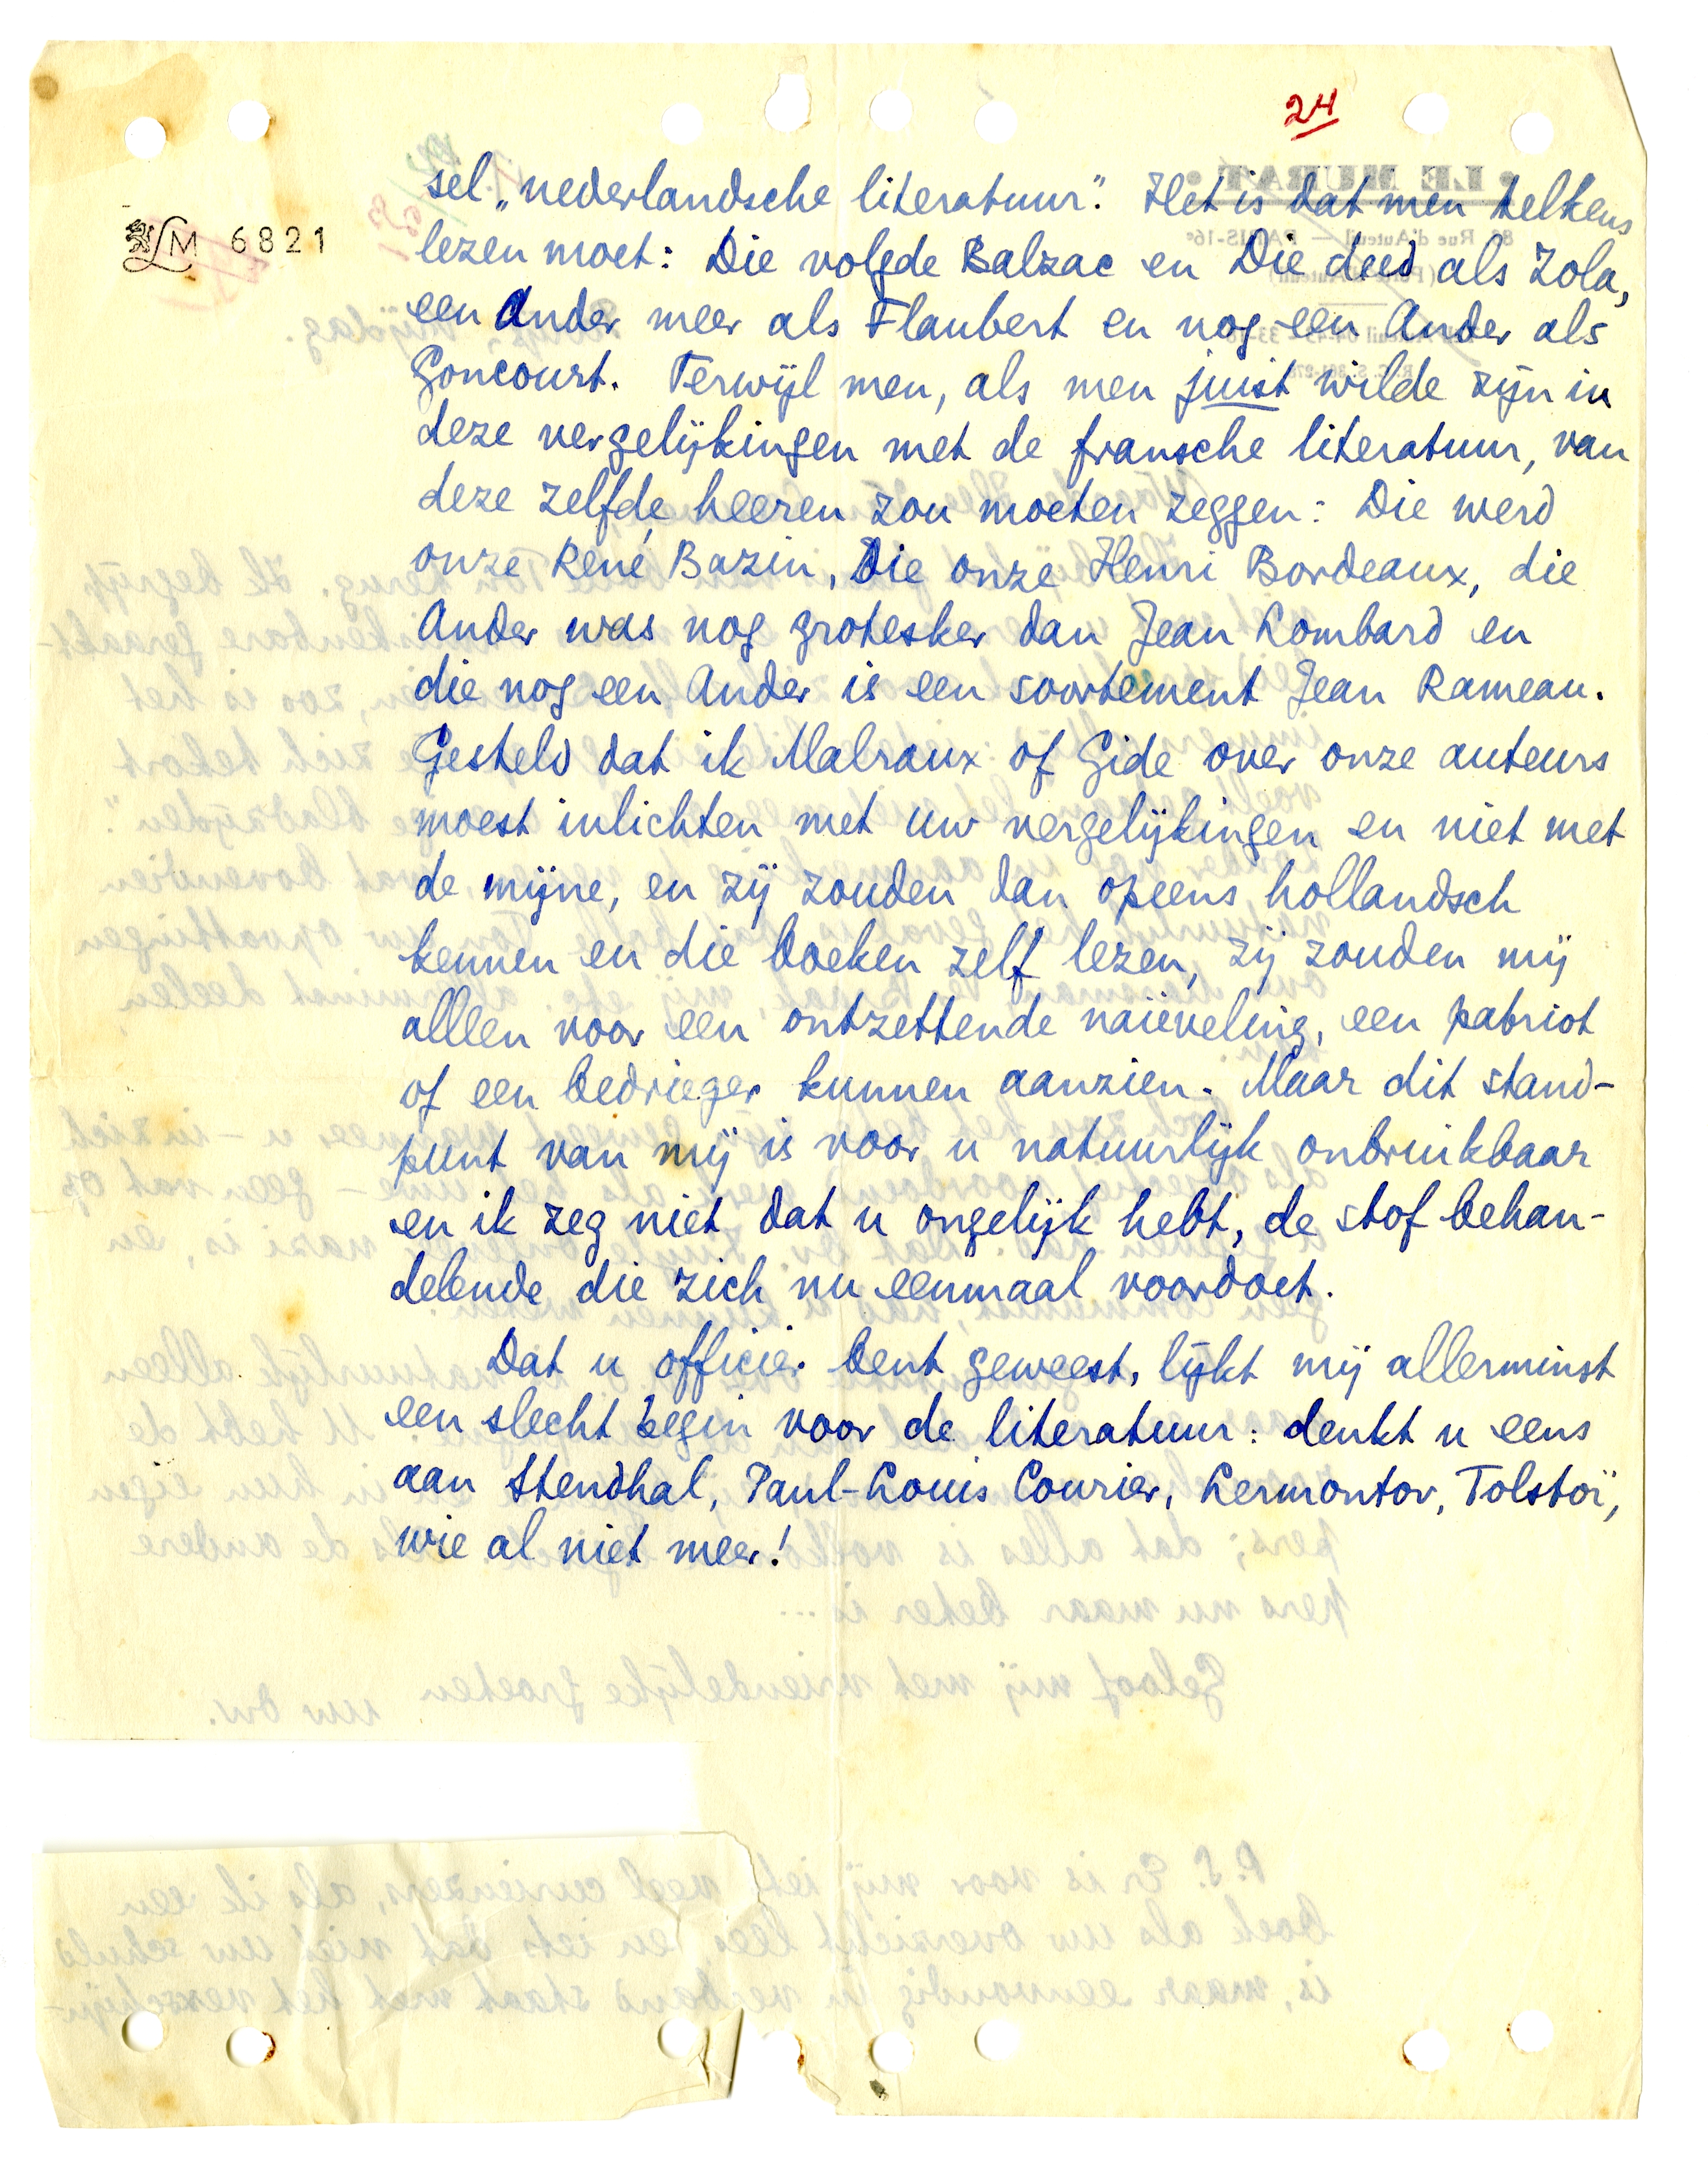 24
LM 6821
sel „nederlandsche literatuur." Het is dat men telkens
lezen moet: Die volgde Balzac en Die deed als Zola,
een Ander meer als Flaubert en nog een Ander als
Goncourt. Terwijl men, als men juist wilde zijn in
deze vergelijkingen met de fransche literatuur, van
deze zelfde heeren zou moeten zeggen: Die werd
onze René Bazin, Die onze Henri Bordeaux, die
Ander was nog grotesker dan Jean Lombard en
die nog een Ander is een soortement Jean Rameau.
Gesteld dat ik Malraux of Gide over onze auteurs
moest inlichten met uw vergelijkingen en niet met
de mijne, en zij zouden dan opeens hollandsch
kennen en die boeken zelf lezen, zij zouden mij
alleen voor een ontzettende naïeveling, een patriot
of een bedrieger kunnen aanzien. Maar dit stand-
punt van mij is voor u natuurlijk onbruikbaar
en ik zeg niet dat u ongelijk hebt, de stof behan-
delende die zich nu eenmaal voordoet.
Dat u officier bent geweest, lijkt mij allerminst
een slecht begin voor de literatuur: denkt u eens
aan Stendhal, Paul-Louis Courier, Lermontov, Tolstoï,
wie al niet meer!